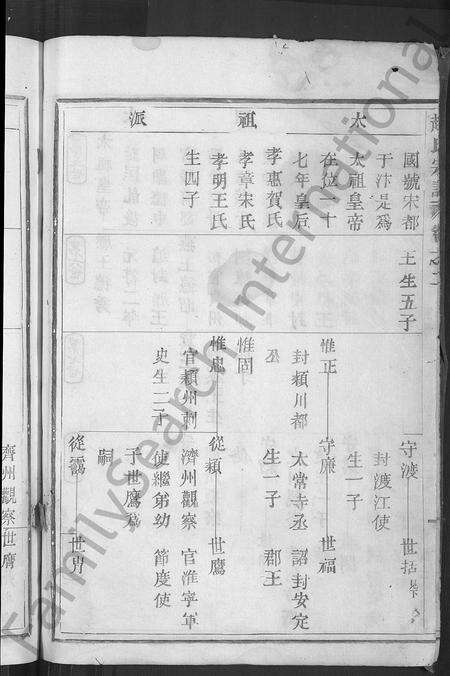 趙氏宗譜 卷之二
太祖派
國號宋都
于汴是爲
太祖皇帝
在位一十
七年皇后
孝惠賀氏
孝章宋氏
孝明王氏
生四子
王生五子
惟正
封潁川都
丞
惟固
惟忠
官潁州刺
史生二子
守渡
封渡江使
生一子
守廉
太常寺丞
生一子
從穎
濟州觀察
使繼弟幼
子世膺爲
嗣
從靄
世括
世福
詔封安定
郡王
世膺
官淮寧軍
節度使
世冑
濟州觀察
世膺
FamilySearch International